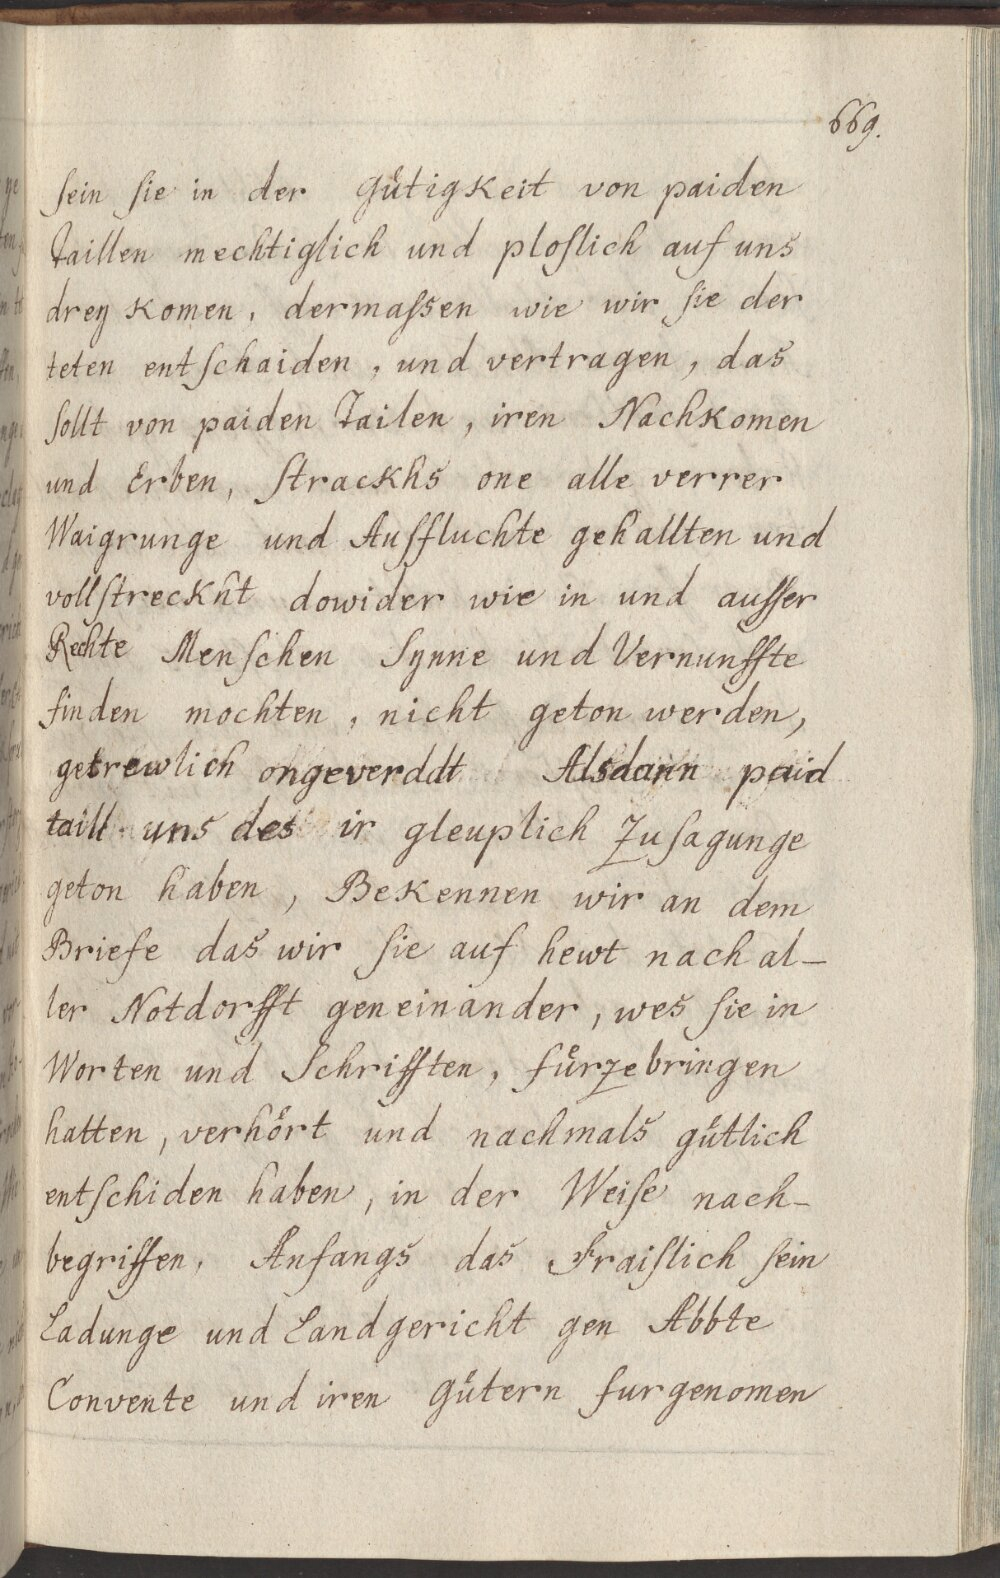 669.
sein sie in der Gütigkeit von paiden
Taillen mechtiglich und ploslich auf uns
drey komen, dermassen wie wir sie der
teten entschaiden, und vertragen, das
sollt von paiden Tailen, iren Nachkomen
und Erben, strackhs one alle verrer
Waigrunge und Ausfluchte gehallten und
vollstreckht dowider wie in und ausser
Rechte Menschen Synne und Vernunffte
finden mochten, nicht geton werden,
getrewlich ongeverddt Alsdann paid
taill uns des ir gleuplich Zusagunge
geton haben, Bekennen wir an dem
Briefe das wir sie auf hewt nach al-
ler Notdorfft geneinander, wes sie in
Worten und Schrifften, fürzebringen
hatten, verhört und nachmals gütlich
entschiden haben, in der Weise nach-
begriffen, Anfangs das Fraislich sein
Ladunge und Landgericht gen Abbte
Convente und iren Gütern furgenomen